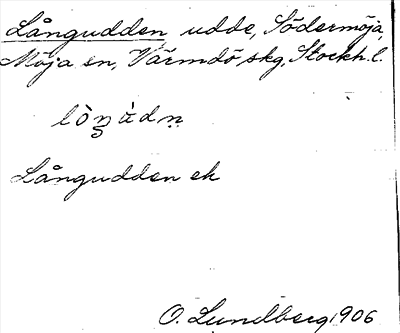 Långudden udde, Södermöja,
Möja sn, Värmdö skg, Stockh. l.
Långudden ek
O. Lundberg 1906